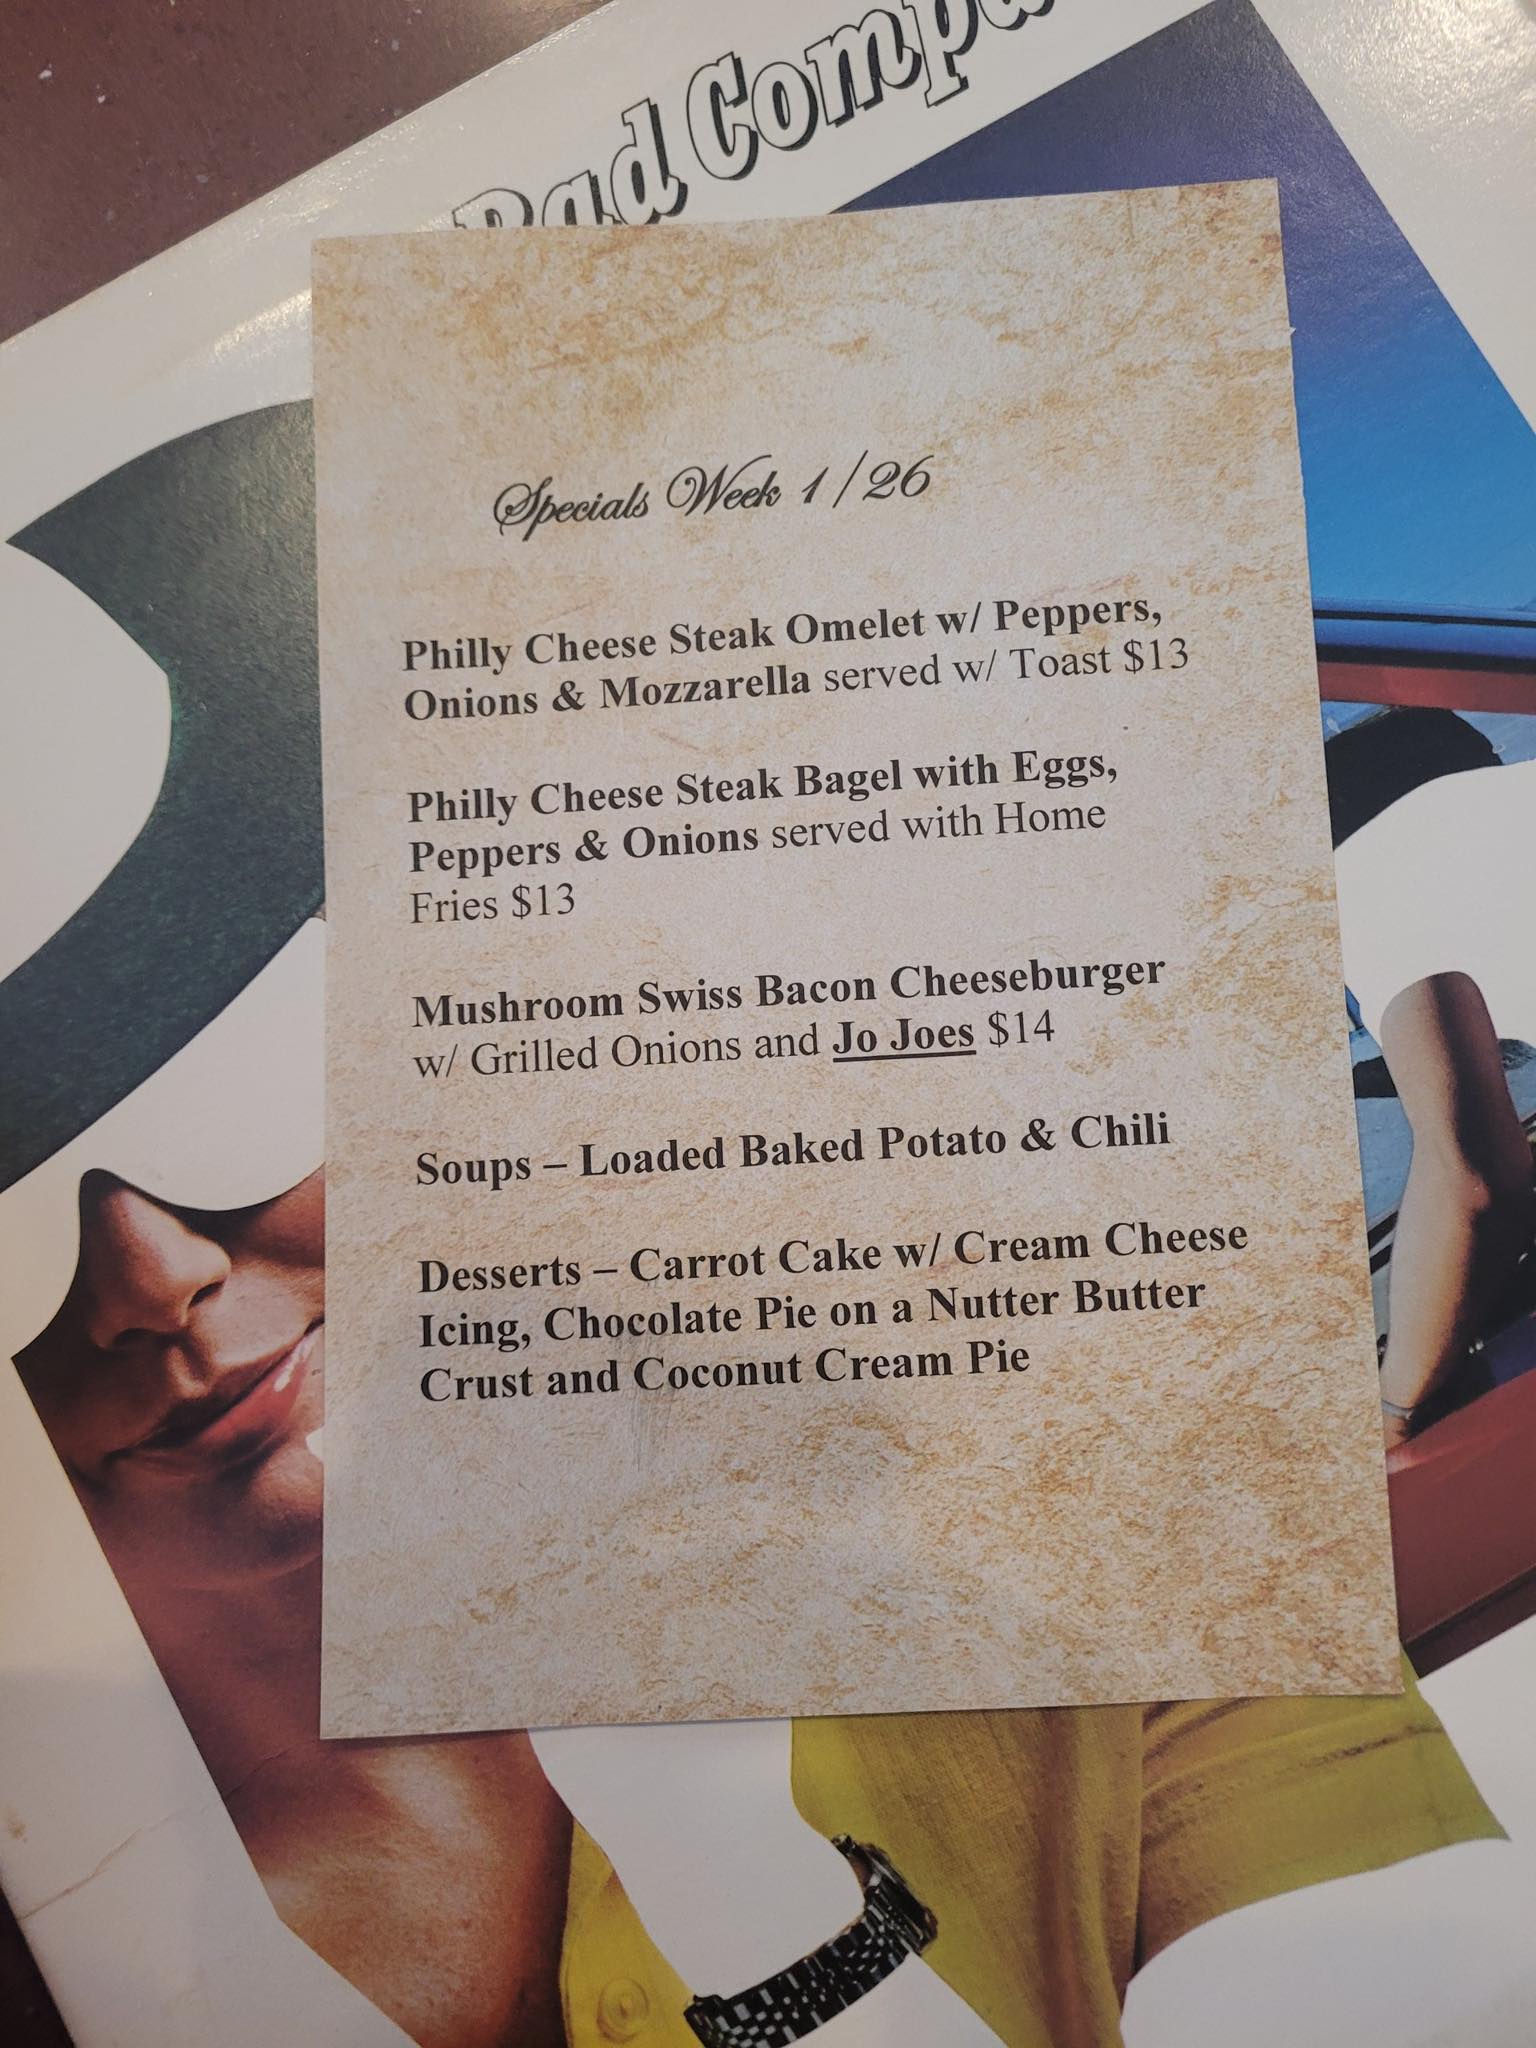 Bad Compa
Specials Week 1/26
Philly Cheese Steak Omelet w/ Peppers,
Onions & Mozzarella served w/ Toast $13
Philly Cheese Steak Bagel with Eggs,
Peppers & Onions served with Home
Fries $13
Mushroom Swiss Bacon Cheeseburger
w/ Grilled Onions and Jo Joes $14
Soups – Loaded Baked Potato & Chili
Desserts – Carrot Cake w/ Cream Cheese
Icing, Chocolate Pie on a Nutter Butter
Crust and Coconut Cream Pie